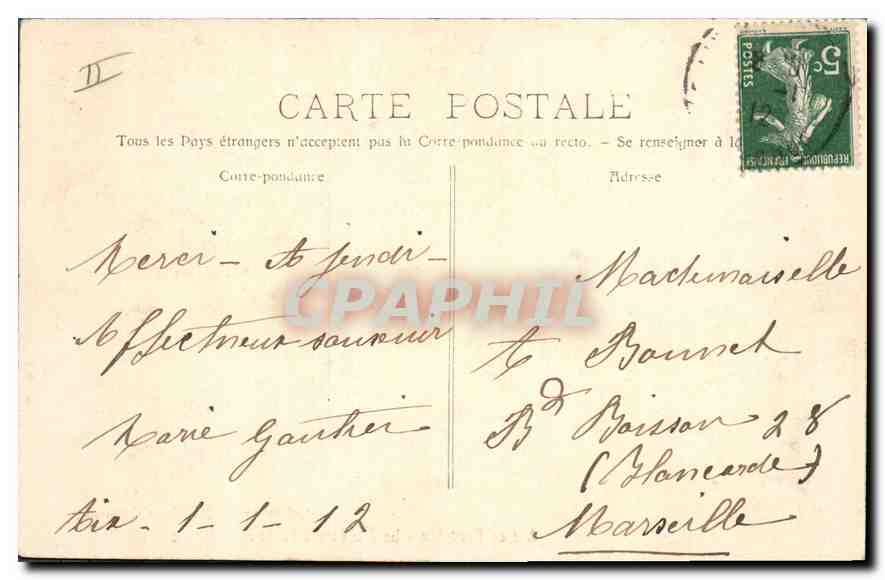 II
CARTE POSTALE
Tous les Pays étrangers n'acceptent pas la Correspondance au recto. – Se renseigner à la
Correspondance
Adresse
5c
POSTES
REPUBLIQUE FRANÇAISE
Merci – A jeudi –
Affectueux souvenir
Marie Gautier
Aix - 1 - 1 - 12
Mademoiselle
A Bonnet
Bd Boisson 28
(Blancarde)
Marseille
CPAPHIL